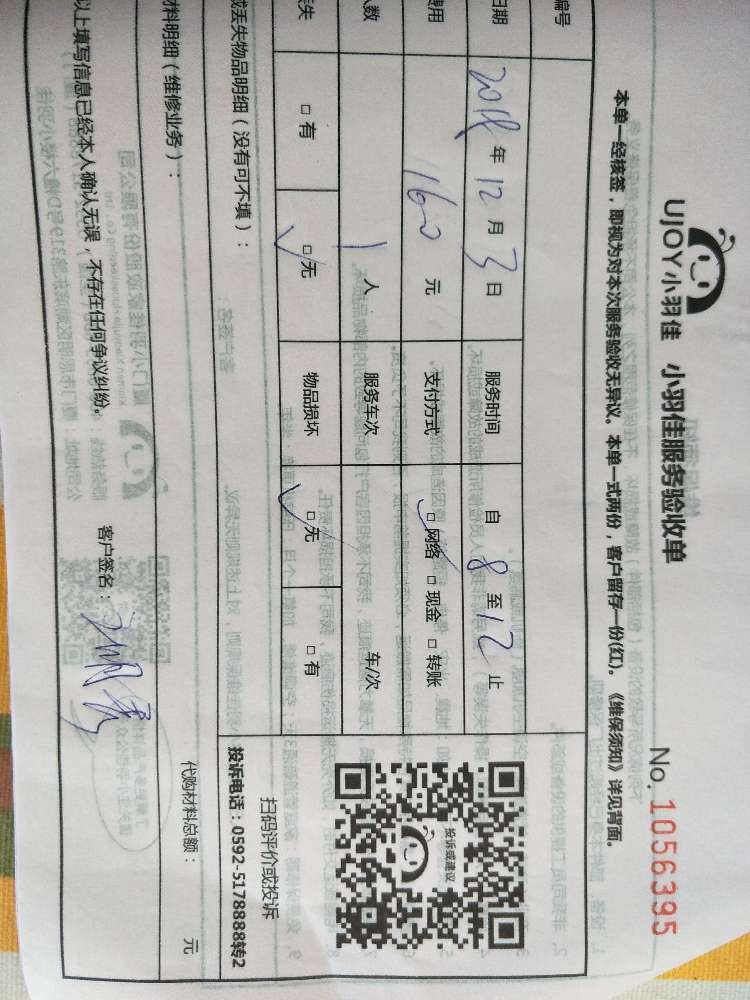 UJOY小羽佳 小羽佳服务验收单
No. 1056395
本单一经核签，即视为对本次服务验收无异议。本单一式两份，客户留存一份(红)。《维保须知》详见背面。
编号
日期 2018年12月3日 服务时间 自 8 至 12 止
费用 160 元 支付方式 □网络 □现金 □转账
人数 1 人 服务车次 车/次
丢失 □有 □无 物品损坏 □无 □有
或丢失物品明细（没有可不填）：
投诉或建议
扫码评价或投诉
投诉电话：0592-5178888转2
材料明细（维修业务）： 代购材料总额： 元
以上填写信息已经本人确认无误，不存在任何争议纠纷。 客户签名：